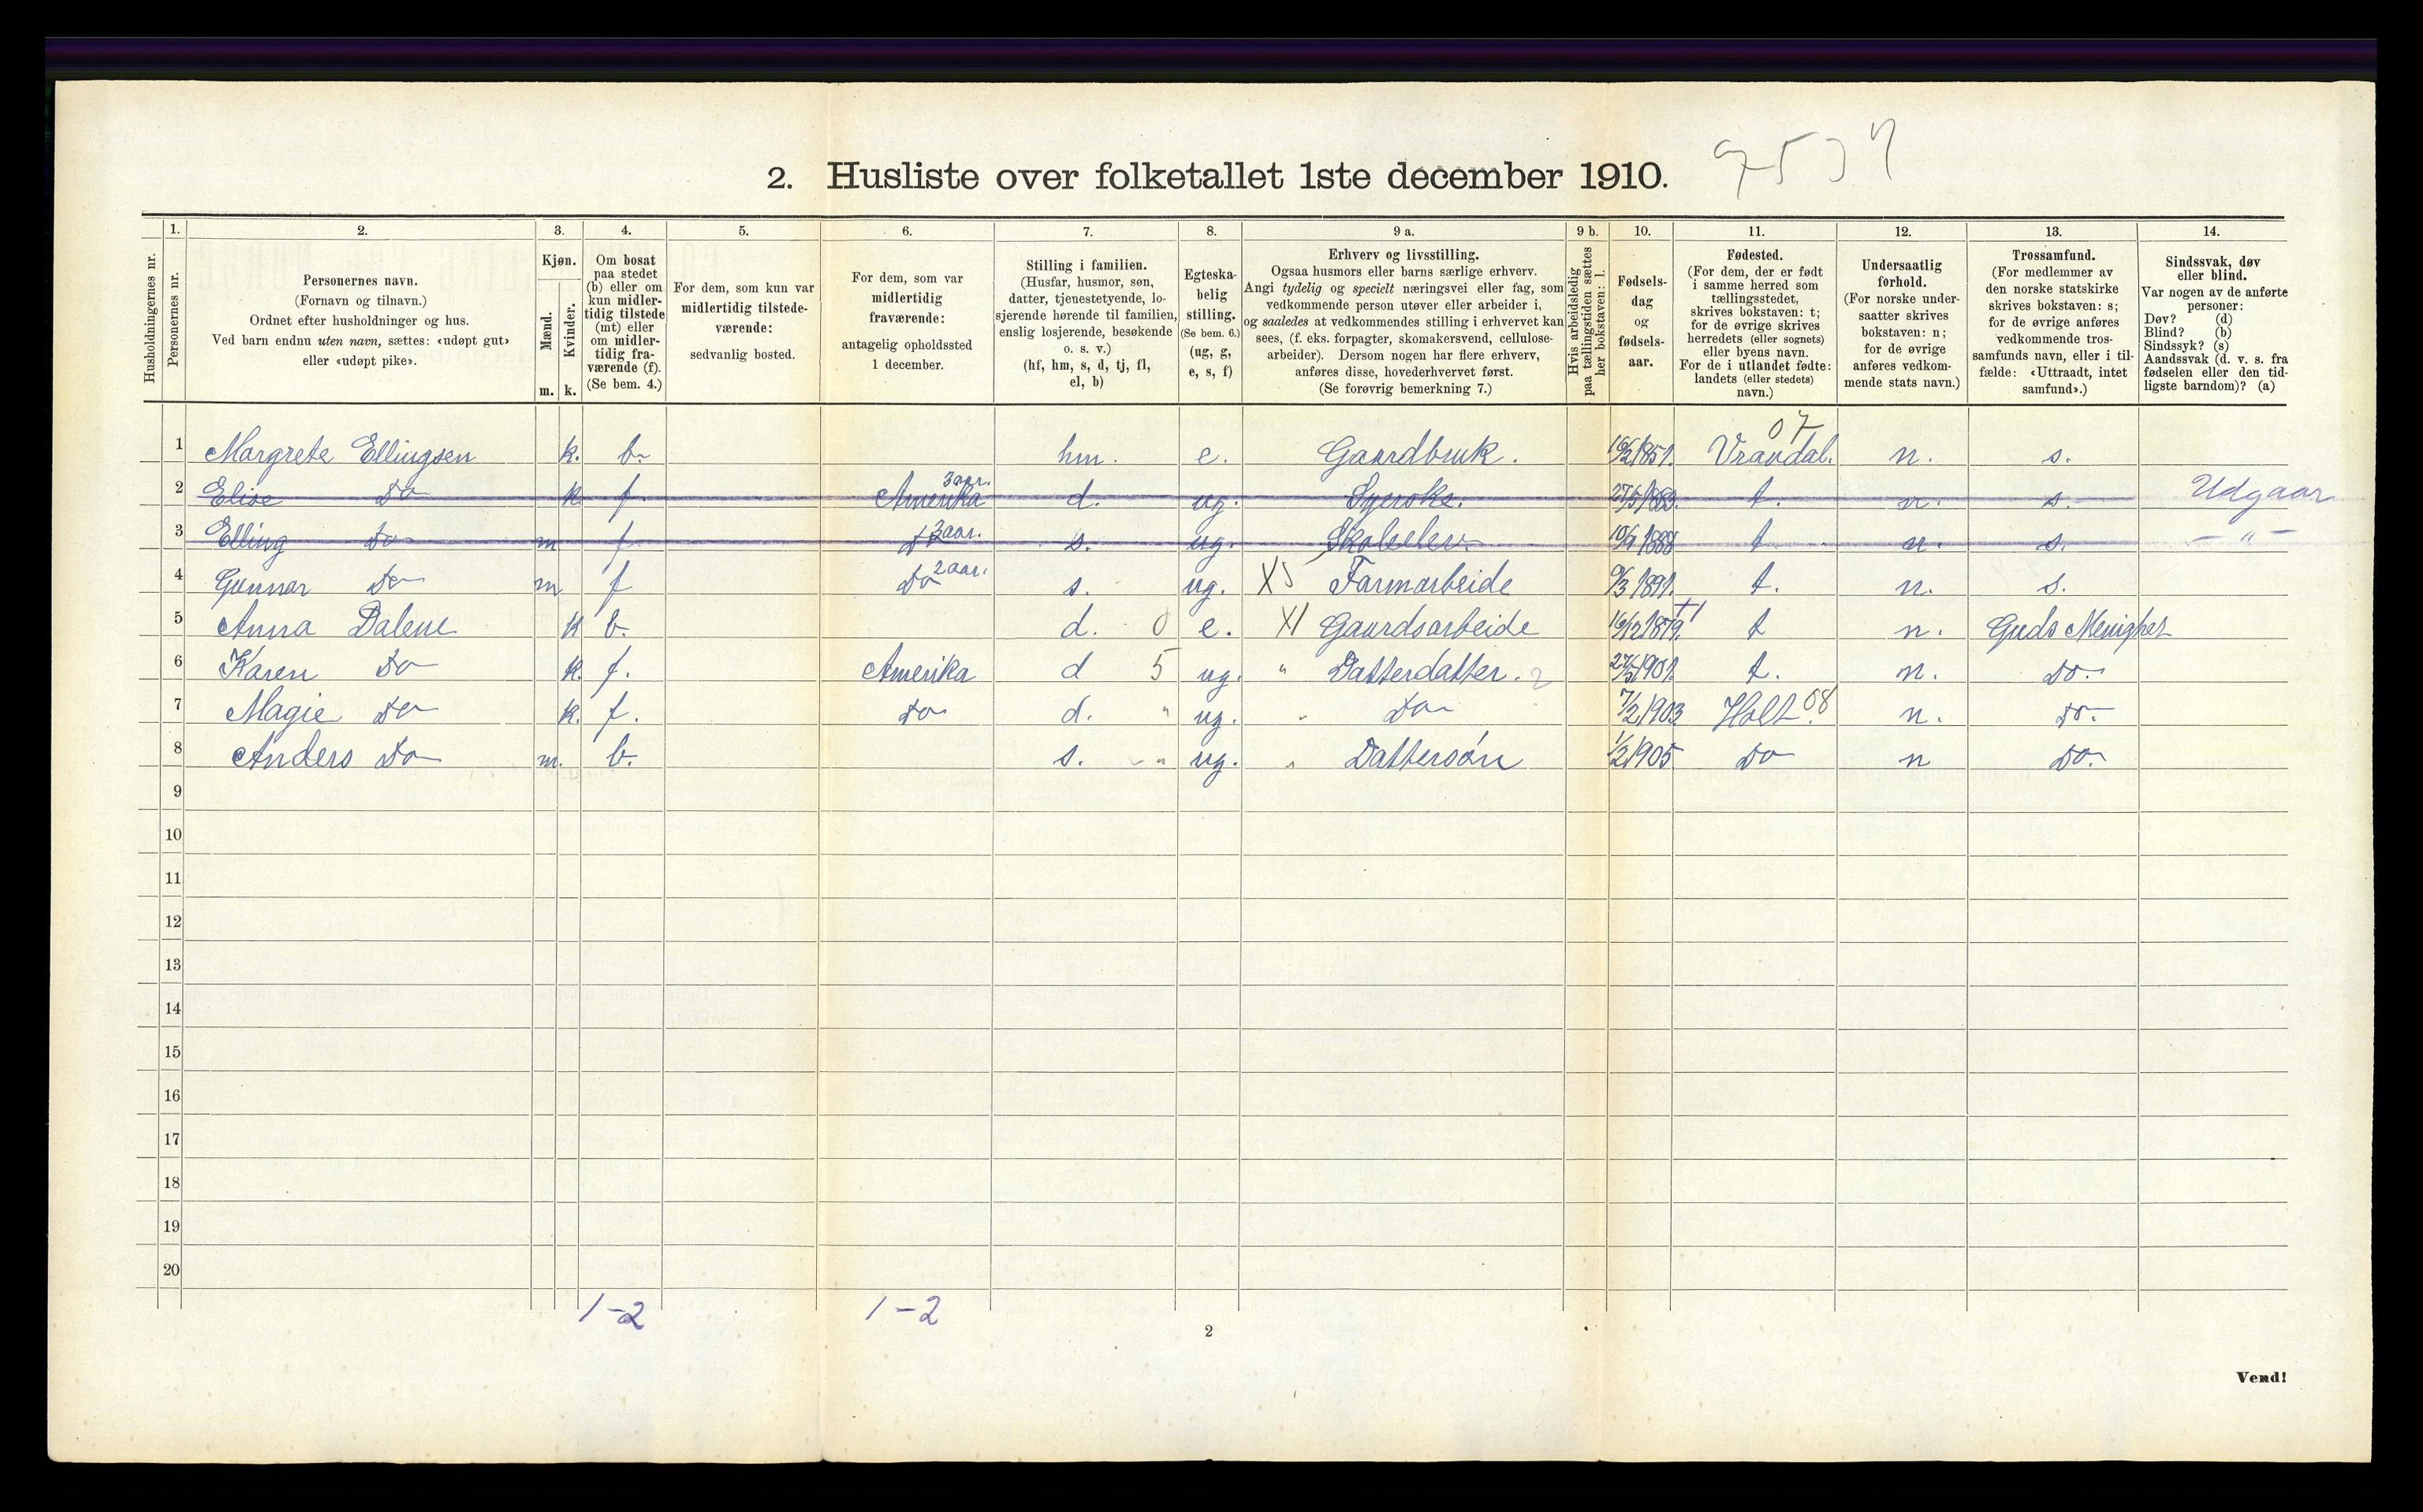 2. Husliste over folketallet 1ste december 1910.
1. 2. 3. 4. 5. 6. 7. 8. 9 a. 9 b. 10. 11. 12. 13. 14.
Husholdningernes nr.
Personernes nr.
Personernes navn.
(Fornavn og tilnavn.)
Ordnet efter husholdninger og hus.
Ved barn endnu uten navn, sættes: «udøpt gut»
eller «udøpt pike».
Kjøn.
Mænd.
m.
Kvinder.
k.
Om bosat
paa stedet
(b) eller om
kun midler-
tidig tilstede
(mt) eller
om midler-
tidig fra-
værende (f).
(Se bem. 4.)
For dem, som kun var
midlertidig tilstede-
værende:
sedvanlig bosted.
For dem, som var
midlertidig
fraværende:
antagelig opholdssted
1 december.
Stilling i familien.
(Husfar, husmor, søn,
datter, tjenestetyende, lo-
sjerende hørende til familien,
enslig losjerende, besøkende
o. s. v.)
(hf, hm, s, d, tj, fl,
el, b)
Egteska-
belig
stilling.
(Se bem. 6.)
(ug, g,
e, s, f)
Erhverv og livsstilling.
Ogsaa husmors eller barns særlige erhverv.
Angi tydelig og specielt næringsvei eller fag, som
vedkommende person utøver eller arbeider i,
og saaledes at vedkommendes stilling i erhvervet kan
sees, (f. eks. forpagter, skomakersvend, cellulose-
arbeider). Dersom nogen har flere erhverv,
anføres disse, hovederhvervet først.
(Se forøvrig bemerkning 7.)
Hvis arbeidsledig
paa tællingstiden sættes
her bokstaven: l.
Fødsels-
dag
og
fødsels-
aar.
Fødested.
(For dem, der er født
i samme herred som
tællingsstedet,
skrives bokstaven: t;
for de øvrige skrives
herredets (eller sognets)
eller byens navn.
For de i utlandet fødte:
landets (eller stedets)
navn.)
Undersaatlig
forhold.
(For norske under-
saatter skrives
bokstaven: n;
for de øvrige
anføres vedkom-
mende stats navn.)
Trossamfund.
(For medlemmer av
den norske statskirke
skrives bokstaven: s;
for de øvrige anføres
vedkommende tros-
samfunds navn, eller i til-
fælde: «Uttraadt, intet
samfund».)
Sindssvak, døv
eller blind.
Var nogen av de anførte
personer:
Døv? (d)
Blind? (b)
Sindssyk? (s)
Aandssvak (d. v. s. fra
fødselen eller den tid-
ligste barndom)? (a)
07
1 Margrete Ellingsen k. b. hm. e. Gaardbruk. 1851. Vraadal. n. s.
2 Elise Do k f Amerika 3 aar. d. ug. Syerske. 27/5 1883. t. n. s. Udgaar
3 Elling Do m f Do 3 aar. s. ug. Skoleelev 10/9 1888 t n. s. - " -
4 Gunnar Do m f Do 2 aar. s. ug. X5 Farmarbeide 9/3 1891. t. n. s.
5 Anna Dalene k b. d. 0 e. X1 Gaardsarbeide 16/12 1879. t n. Guds Menighet
6 Karen Do k. f. Amerika d 5 ug. " Datterdatter. 2 1901. t. n. Do.
7 Magie Do k. f. Do d. " ug. " Do 7/2 1903 Holt 08 n. Do.
8 Anders Do m. b. s. " ug. " Dattersøn 1/2 1905 Do n Do.
9
10
11
12
13
14
15
16
17
18
19
20
1-2 1-2
2
Vend!